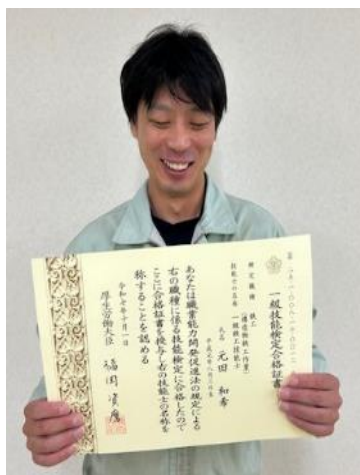 一級技能検定合格証書
検定職種 鉄工
(構造物鉄工作業)
技能士の名称 一級鉄工技能士
氏名 元田 和希
あなたは職業能力開発促進法の規定による
右の職種に係る技能検定に合格したので
ここに合格証書を授与し右の技能士の名称を
称することを認める
令和七年十月一日
厚生労働大臣 福岡資麿